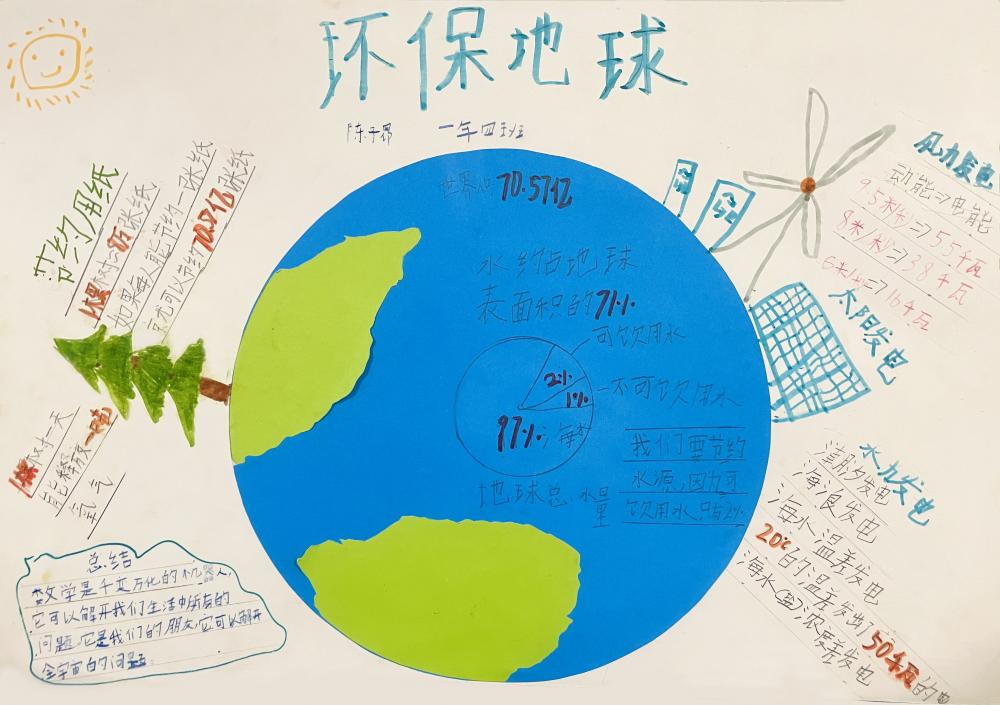 环保地球
陈子昂 一年四班
节约用纸
1棵树=8万张纸
如果每人能节约一张纸
可以节约70.57亿张纸
1棵树一天
能释放一吨
氧气
世界人口70.57亿
水约占地球
表面积的71%
可饮用水
2%
1%
不可饮用水
97%海水
地球总水量
我们要节约
水源,因为可
饮用水只占2%
风力发电
动能=>电能
9.5米/秒=>55千瓦
8米/秒=>38千瓦
6米/秒=>16千瓦
太阳发电
水力发电
潮汐发电
海浪发电
海水温差发电
20℃的温差发出了50千瓦的电
海水(盐)浓度差发电
总结
数学是千变万化的机器人,
它可以解开我们生活中所有的
问题,它是我们的朋友,它可以解开
全宇宙的问题。